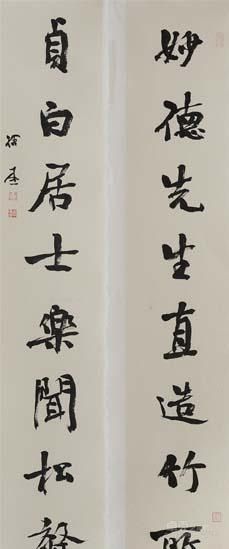 妙德先生直造竹所
貞白居士樂聞松聲